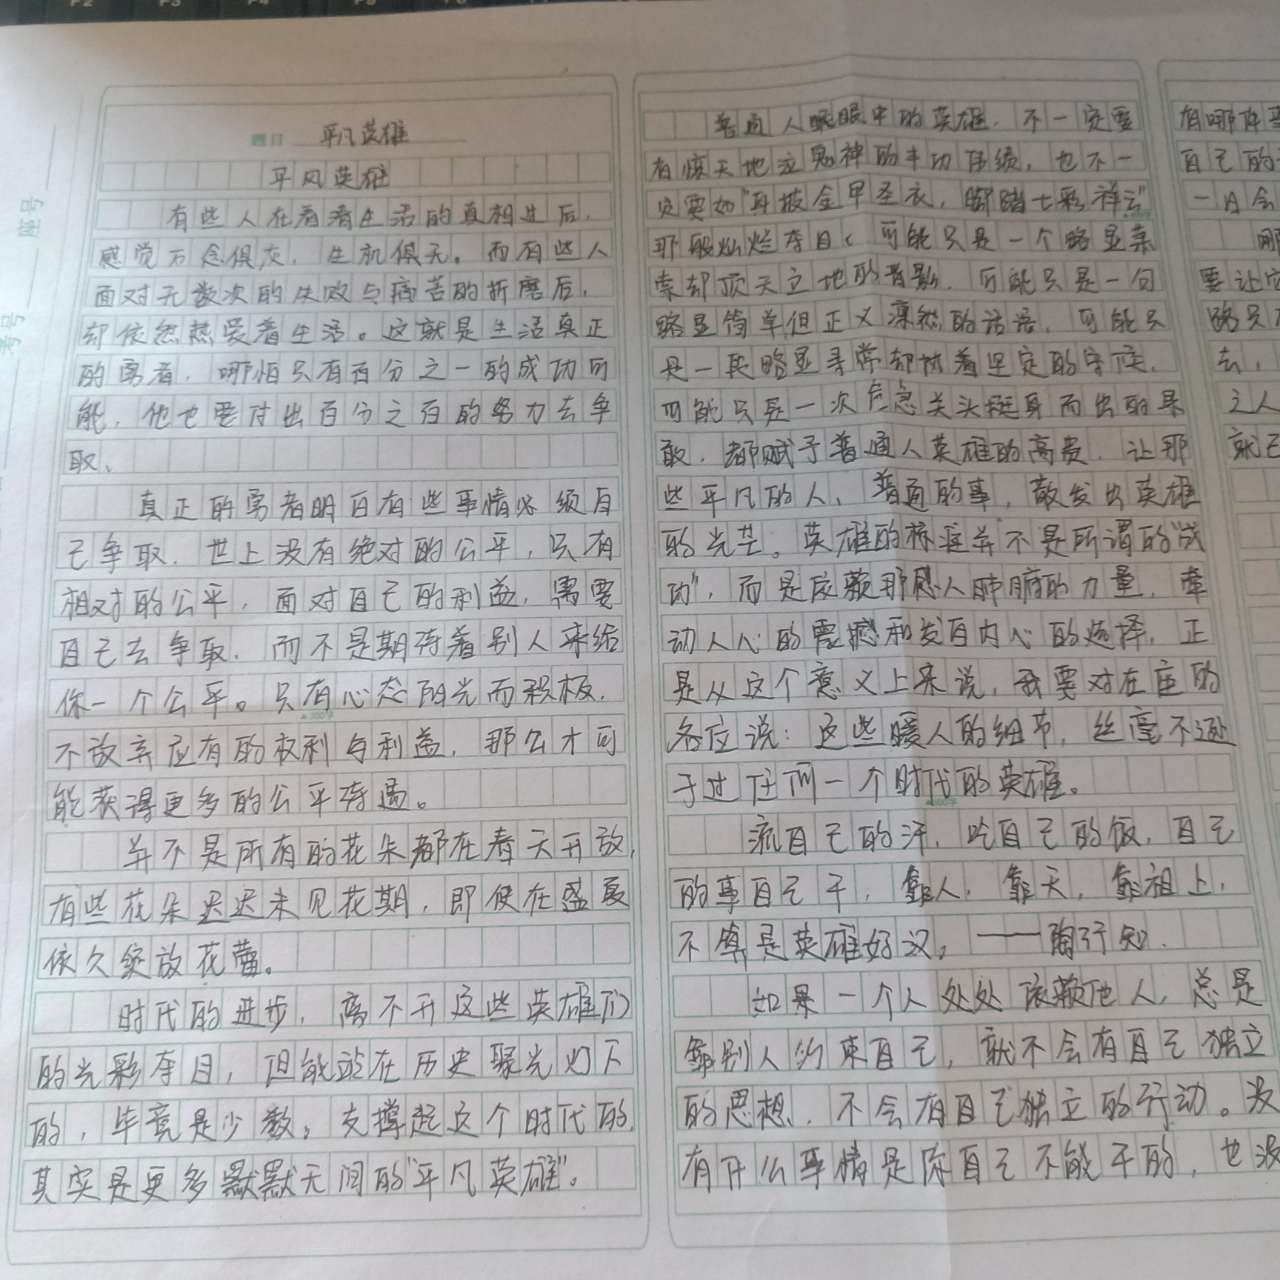 F2
F3
F4
座号
考号
题目 平凡英雄
平凤英雄
有些人在看清生活的真相之后，
感觉万念俱灰，生机俱无。而有些人
面对无数次的失败与痛苦的折磨后，
却依然热爱着生活。这就是生活真正
的勇者，哪怕只有百分之一的成功可
能，他也要付出百分之百的努力去争
取。
真正的勇者明白有些事情必须自
己争取，世上没有绝对的公平，只有
相对的公平，面对自己的利益，需要
自己去争取，而不是期待着别人来给
你一个公平。只有心态阳光而积极，
不放弃应有的权利与利益，那么才可
能获得更多的公平待遇。
并不是所有的花朵都在春天开放，
有些花朵迟迟未见花期，即使在盛夏
依久绽放花蕾。
时代的进步，离不开这些英雄们
的光彩夺目，但能站在历史聚光灯下
的，毕竟是少数。支撑起这个时代的，
其实是更多默默无闻的"平凡英雄"。
普通人眼中的英雄，不一定要
有惊天地泣鬼神的丰功伟绩，也不一
定要如"身披金甲圣衣，脚踏七彩祥云"
那般灿烂夺目，可能只是一个略显
却顶天立地的背影，可能只是一句
略显简单但正义凛然的话语，可能只
是一段略显寻常却执着坚定的守候，
可能只是一次危急关头挺身而出的果
敢，都赋予普通人英雄的高贵，让那
些平凡的人、普通的事，散发出英雄
的光芒。英雄的标准并不是所谓的"成
功"，而是蕴藏那感人肺腑的力量，牵
动人心的震撼和发自内心的选择，正
是从这个意义上来说，我要对在座的
各位说：这些暖人的细节，丝毫不逊
于过任何一个时代的英雄。
流自己的汗，吃自己的饭，自己
的事自己干，靠人，靠天，靠祖上，
不算是英雄好汉。——陶行知
如果一个人处处依赖他人，总是
靠别人约束自己，就不会有自己独立
的思想，不会有自己独立的行动。没
有什么事情是你自己不能干的，也没
有哪件
自己的
一日会
哪
要让
路只
去，
之人
就己